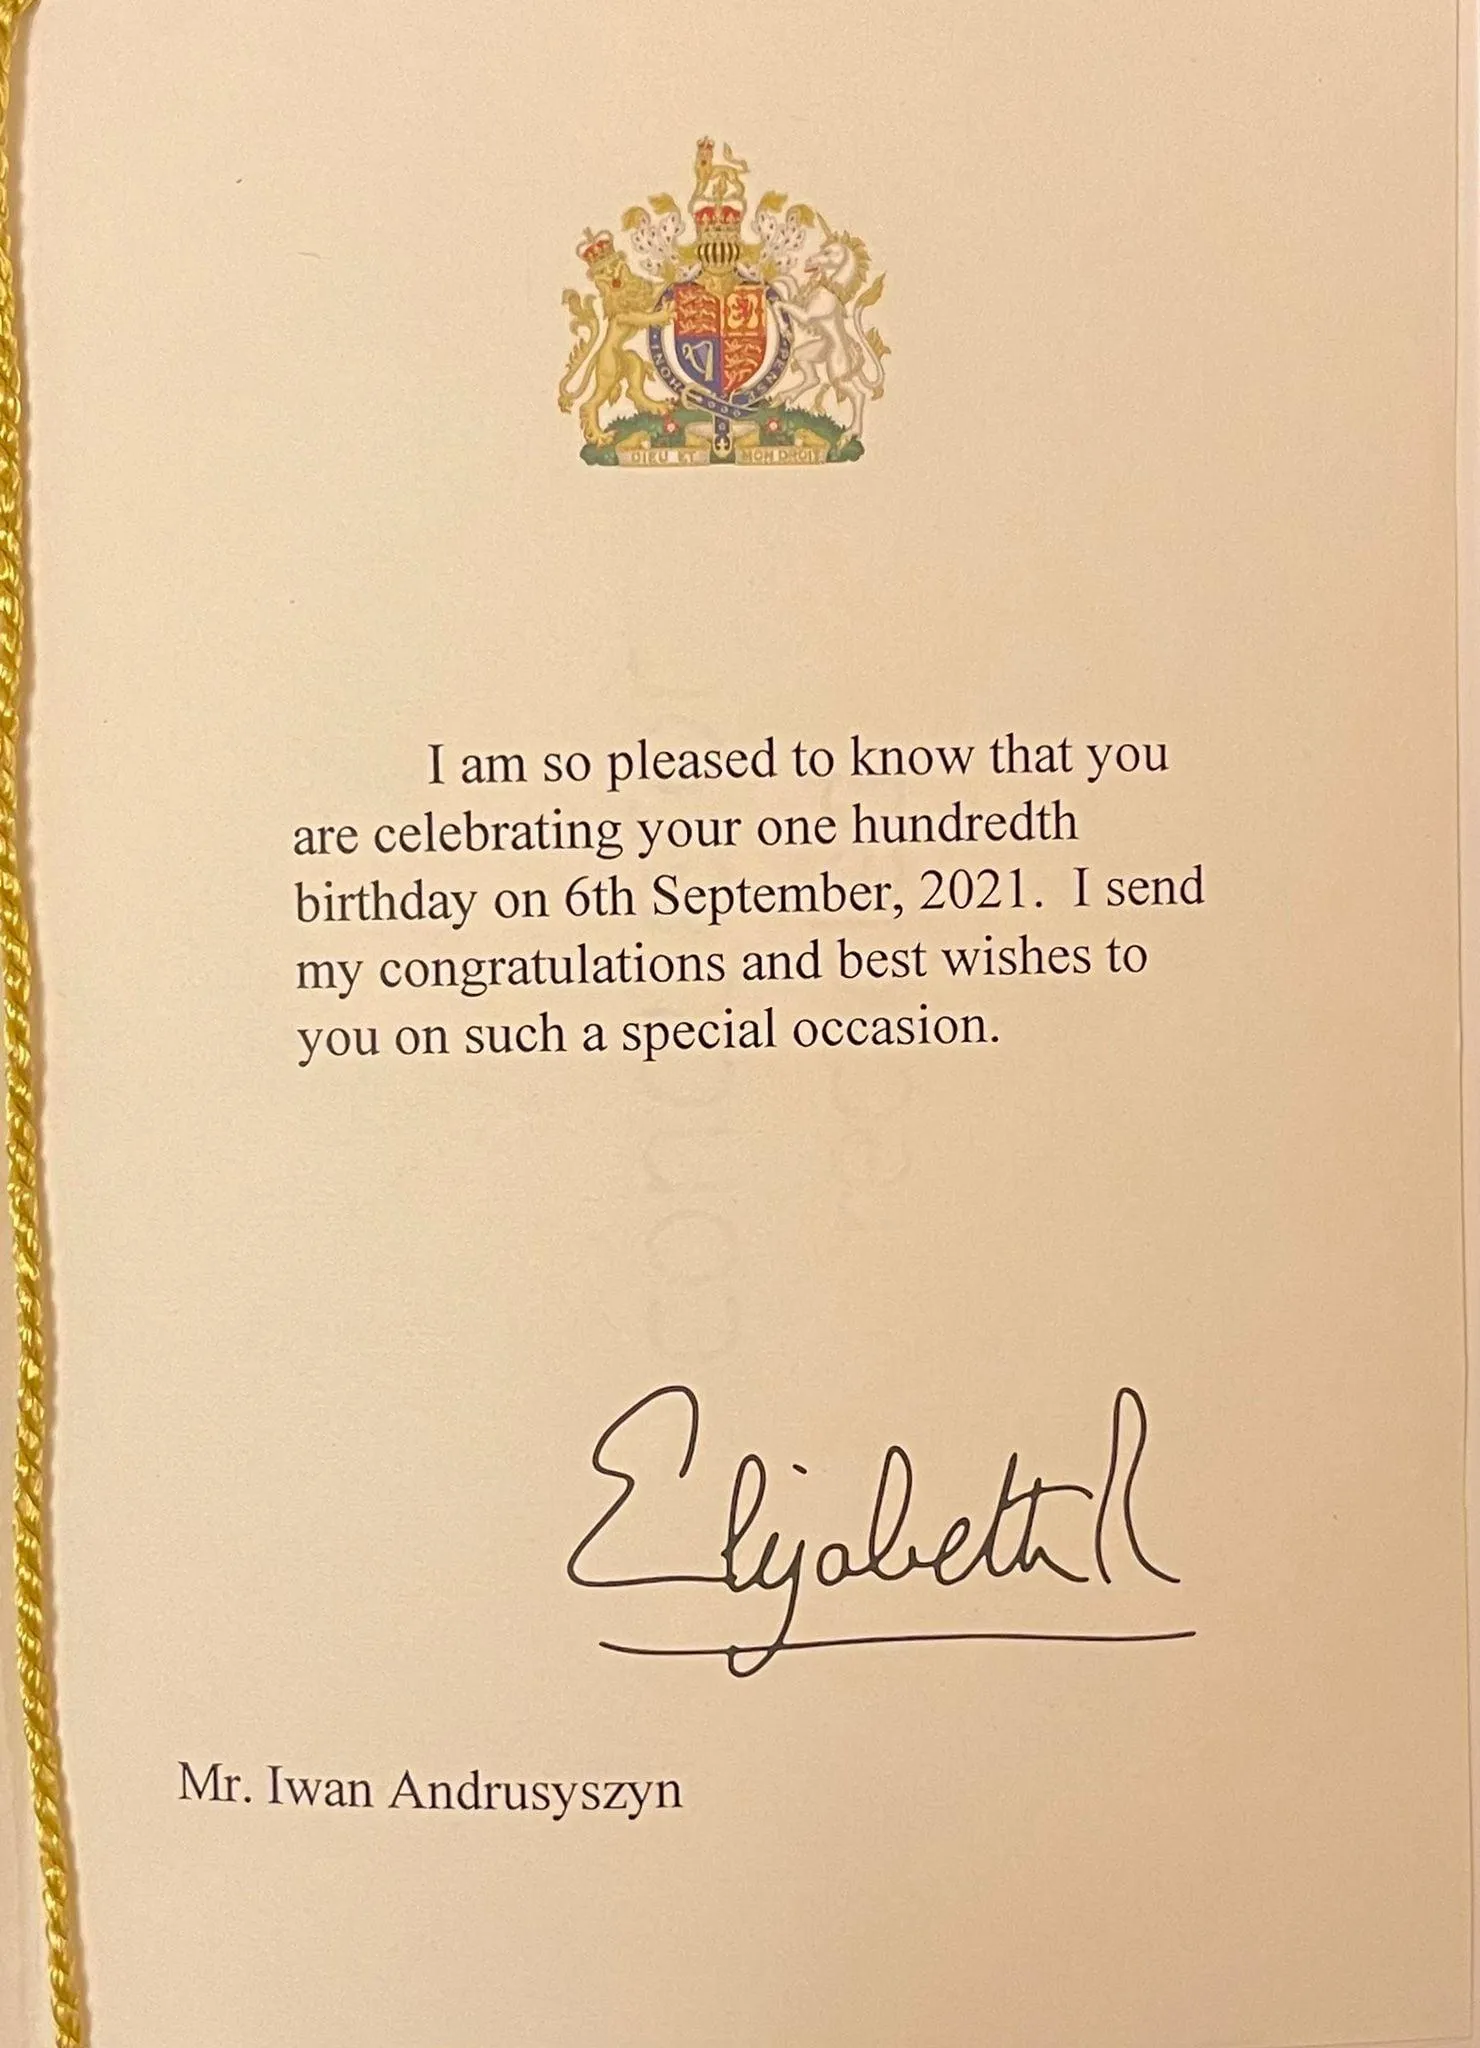 HONI PENSE
DIEU ET MON DROIT
I am so pleased to know that you
are celebrating your one hundredth
birthday on 6th September, 2021.  I send
my congratulations and best wishes to
you on such a special occasion.
Elizabeth R
Mr. Iwan Andrusyszyn